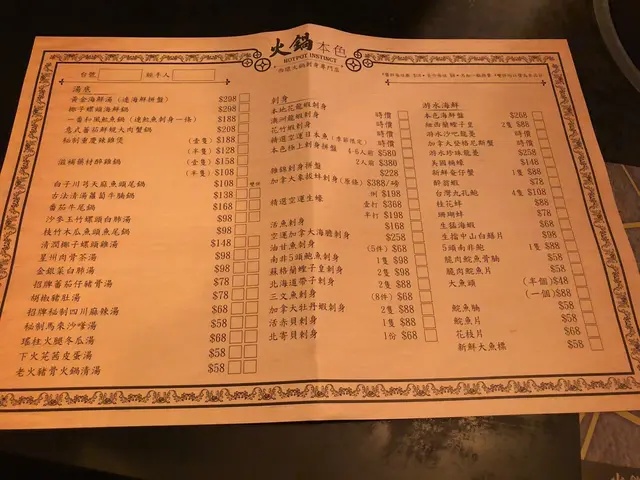 火鍋本色
HOTPOT INSTINCT
台號
經手人
湯底
黃金海鮮湯（連海鮮拼盤） $298
椰子螺頭海鮮鍋 $298
一番和風魷魚鍋 $188
意式蕃茄鮮蜆大肉蟹鍋 $188
秘制重慶辣雞煲 （壹隻） $188
（半隻） $128
滋補藥材醉雞鍋 （壹隻） $158
（半隻） $108
白子川芎天麻魚頭尾鍋 $108
古法清湯蘿蔔牛腩鍋 $138
蕃茄牛尾鍋 $168
沙參玉竹螺頭白肺湯 $98
枝竹木瓜魚頭魚尾鍋 $98
清潤椰子螺頭雞湯 $148
星州肉骨茶湯 $98
金銀菜白肺湯 $98
招牌蕃茄仔豬骨湯 $78
胡椒豬肚湯 $78
招牌秘制四川麻辣湯 $68
秘制馬來沙嗲湯 $58
瑤柱火腿冬瓜湯 $68
下火芫茜皮蛋湯 $58
老火豬骨火鍋清湯 $58
刺身
本地花龍蝦刺身 時價
澳洲龍蝦刺身 時價
花竹蝦刺身 時價
時價
本色極上刺身拼盤 4-6人前 $580
2人前 $380
雜錦刺身拼盤 $228
加拿大象拔蚌刺身（原條） $388/磅
例 $198
精選空運生蠔 壹打 $368
半打 $198
活魚刺身 $168
空運加拿大海膽刺身 $258
油甘魚刺身 （5件） $68
南非5頭鮑魚刺身 1隻 $98
蘇格蘭蟶子皇刺身 2隻 $98
北海道帶子刺身 2隻 $68
三文魚刺身 （8件） $68
加拿大牡丹蝦刺身 2隻 $88
活赤貝刺身 1隻 $88
北寄貝刺身 1份 $68
游水海鮮
本色海鮮盤 $268
紐西蘭蟶子皇 2隻 $88
游水沙巴龍躉 $98
加拿大登格尼斯蟹 時價
游水珍珠龍躉 $258
美國桶蠔 $148
新鮮奄仔蟹 1隻 $86
醉翁蝦 $78
台灣九孔鮑 4隻 $108
桂花蚌 $88
珊瑚蚌 $68
生猛海蝦 $68
生拆中山白鱔片 $98
5頭南非鮑 1隻 $88
脆肉鯇魚骨腩 $58
脆肉鯇魚片 $58
大魚頭 （半個） $48
（一個） $88
鯇魚腩 $58
鯇魚片 $58
花枝片 $68
新鮮大魚標 $58